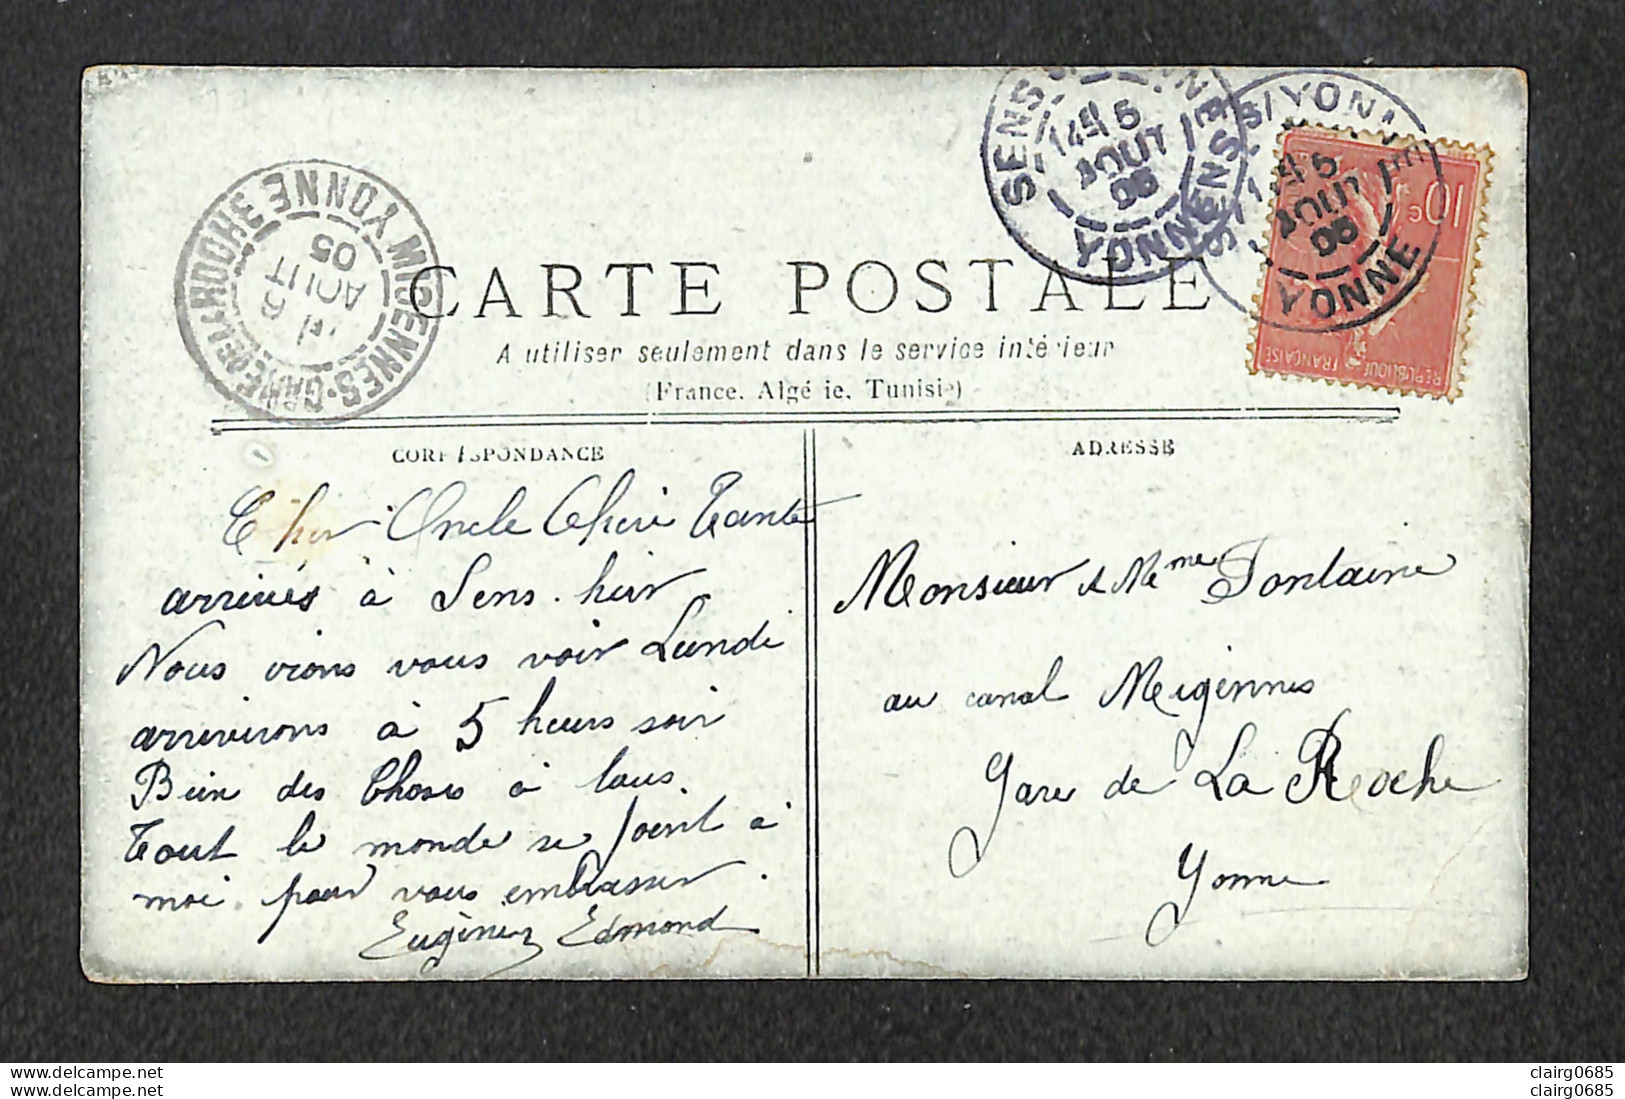 SENS S/YONNE
YONNE
SENS S/YONNE
5
AOUT
YONNE
10c
REPUBLIQUE FRANÇAISE
MIGENNES-GARE DE LAROCHE YONNE
6
AOUT
05
CARTE POSTALE
A utiliser seulement dans le service intérieur
(France, Algérie, Tunisie)
CORRESPONDANCE
Cher Oncle Chère Tante
arrivés à Sens. hier
Nous irons vous voir Lundi
arriverons à 5 heures soir
Bien des Choses à tous.
Tout le monde se joint à
moi pour vous embrasser.
Eugène Edmond
ADRESSE
Monsieur & Mme Fontaine
au canal Migennes
Gare de La Roche
Yonne
clairg0685
clairg0685